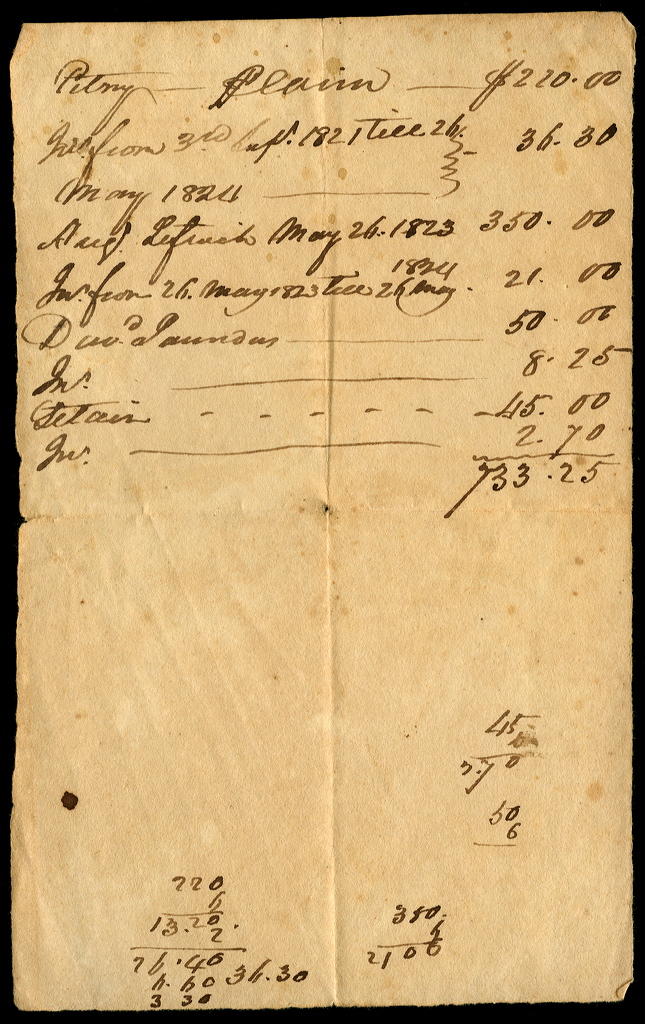 Pitny — Claim — $220.00
Int. from 3rd Sept. 1821 till 26. 36.30
May 1824
Aug. Leftwich May 26. 1823 350.00
Int. from 26. May 1823 till 26 May 1824. 21.00
Dav.d Saunders 50.00
Int. 8.25
Detain - - - - - 45.00
Int. 2.70
733.25
45
6
2.70
50
6
220
6
13.20
2.
26.40
6.60 36.30
3 30
350.
6
2100